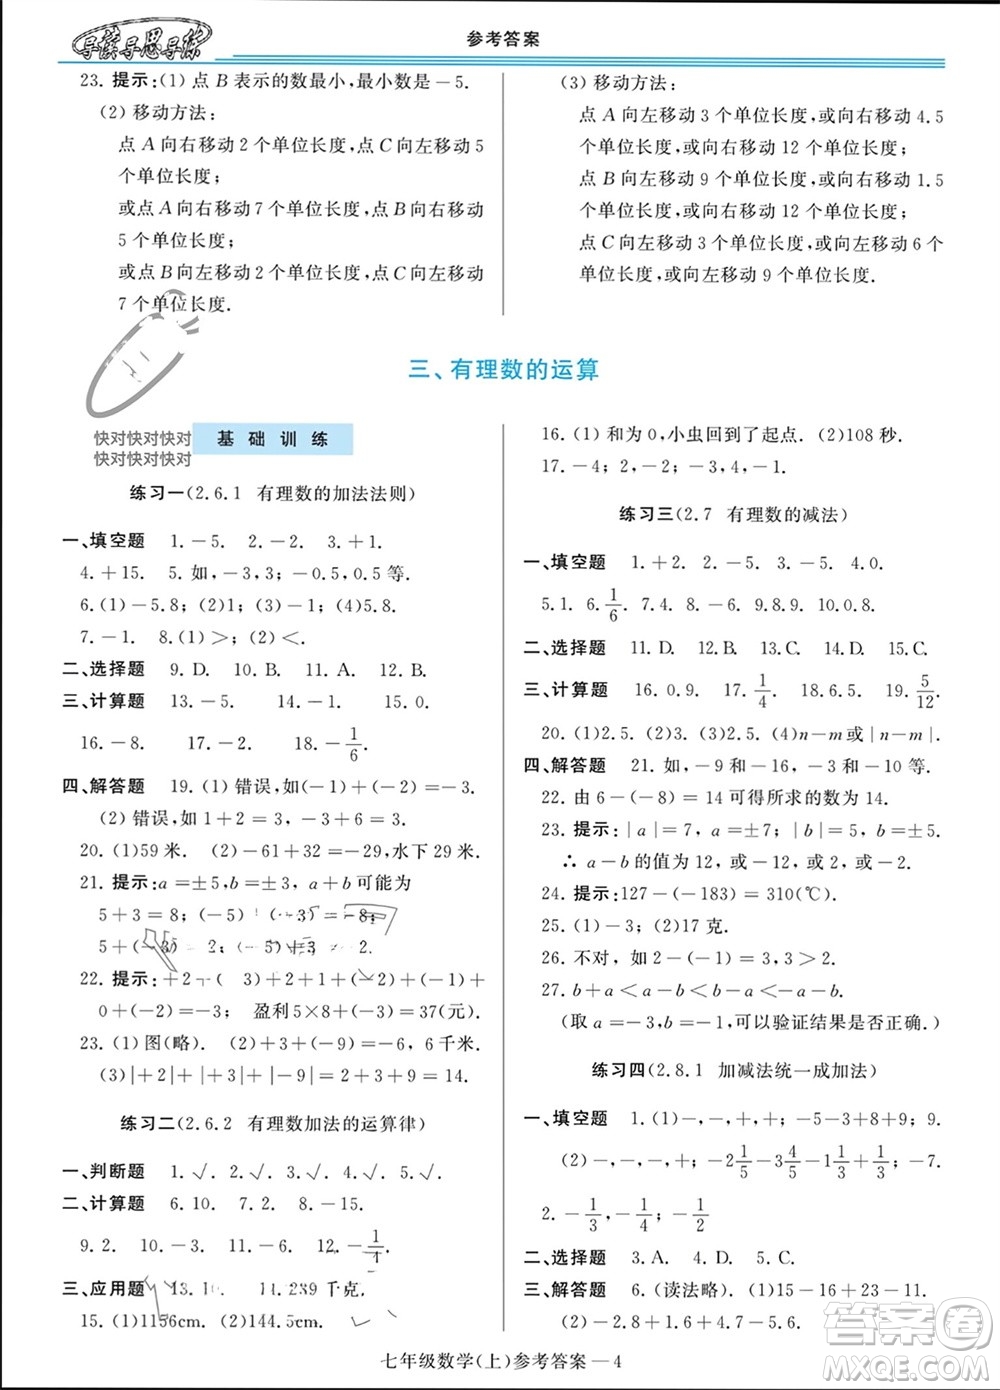 导读导思导练
参考答案
23. 提示:(1) 点 B 表示的数最小,最小数是－5.
(2) 移动方法:
点 A 向右移动 2 个单位长度,点 C 向左移动 5
个单位长度;
或点 A 向右移动 7 个单位长度,点 B 向右移动
5 个单位长度;
或点 B 向左移动 2 个单位长度,点 C 向左移动
7 个单位长度.
(3) 移动方法:
点 A 向左移动 3 个单位长度,或向右移动 4.5
个单位长度,或向右移动 12 个单位长度;
点 B 向左移动 9 个单位长度,或向右移动 1.5
个单位长度,或向右移动 12 个单位长度;
点 C 向左移动 3 个单位长度,或向左移动 6 个
单位长度,或向左移动 9 个单位长度.
三、有理数的运算
快对快对快对
快对快对快对
基础训练
练习一(2.6.1 有理数的加法法则)
一、填空题 1.－5. 2.－2. 3.＋1.
4.＋15. 5. 如,－3,3;－0.5,0.5 等.
6.(1)－5.8;(2)1;(3)－1;(4)5.8.
7.－1. 8.(1)＞;(2)＜.
二、选择题 9. D. 10. B. 11. A. 12. B.
三、计算题 13.－5. 14.－1. 15.0.
16.－8. 17.－2. 18.－1/6.
四、解答题 19.(1)错误,如(－1)＋(－2)＝－3.
(2) 错误,如－1＋2＝1,－3＋6＝3.
20.(1)59 米. (2)－61＋32＝－29,水下 29 米.
21. 提示:a＝±5,b＝±3,a＋b 可能为
5＋3＝8;(－5)＋(－3)＝－8;
5＋(－3)＝2; (－5)＋3 2.
22. 提示:＋2 ( 3)＋2＋1＋(－2)＋(－1)＋
0＋(－2)＝－3; 盈利 5×8＋(－3)＝37(元).
23.(1) 图(略). (2)(＋2)＋(＋1)＋(－9)＝－6, 6 千米.
(3)|＋2|＋|＋1|＋|－9|＋|＋2|＝14.
练习二(2.6.2 有理数加法的运算律)
一、判断题 1.√. 2.√. 3.√. 4.√. 5.√.
二、计算题 6.10. 7.2. 8.－15.
9.2. 10.－3. 11.－6. 12.－1/4.
三、应用题 13. 14. 239 千克.
15.(1)1156cm. (2)144.5cm.
16.(1) 和为 0,小虫回到了起点. (2)108 秒.
17.－4;2;－2;－3,4,－1.
练习三(2.7 有理数的减法)
一、填空题 1.＋2. 2.－5. 3.－5. 4.0.
5.1. 6.1/6. 7.4. 8.－6. 9.8.9. 10.0.8.
二、选择题 11. D. 12. D. 13. C. 14. D. 15. C.
三、计算题 16.0.9. 17.1/4. 18.6.5. 19.5/12.
20.(1)2.5. (2)2. (3)2.5. (4)n－m或|n－m|.
四、解答题 21. 如,－9 和－16,－3 和－10 等.
22. 由 6－(－8)＝14 可得所求的数为 14.
23. 提示:|a|＝7, a＝±7,|b|＝5, b＝±5.
∴ a－b 的值为 12,或－12,或 2,或－2.
24. 提示:127－(－183)＝310(℃).
25.(1)－(3);(2)17 克.
26. 不对,如－2－(－5)＝3,3＞－2.
27. b＋a＜b＜a＜b－a＜－b＜a－b.
(取 a＝－3,b＝－1,可以验证结果是否正确.)
练习四(2.8.1 加减法统一成加法)
一、填空题 1.(1)－,－,＋,＋;－5－3＋8＋9; 9.
(2)－,－,＋;－2 1/5－3 4/5－1 1/3＋1/3;－7.
2.－1/3,－1/4,－1/2
二、选择题 3. A. 4. D. 5. D.
三、解答题 6.(读法略). (1)15－16＋23－11.
(2)－0.8－1.2＋4.7－5.6.
七年级数学(上)参考答案—4
答案圈
MXQE.COM